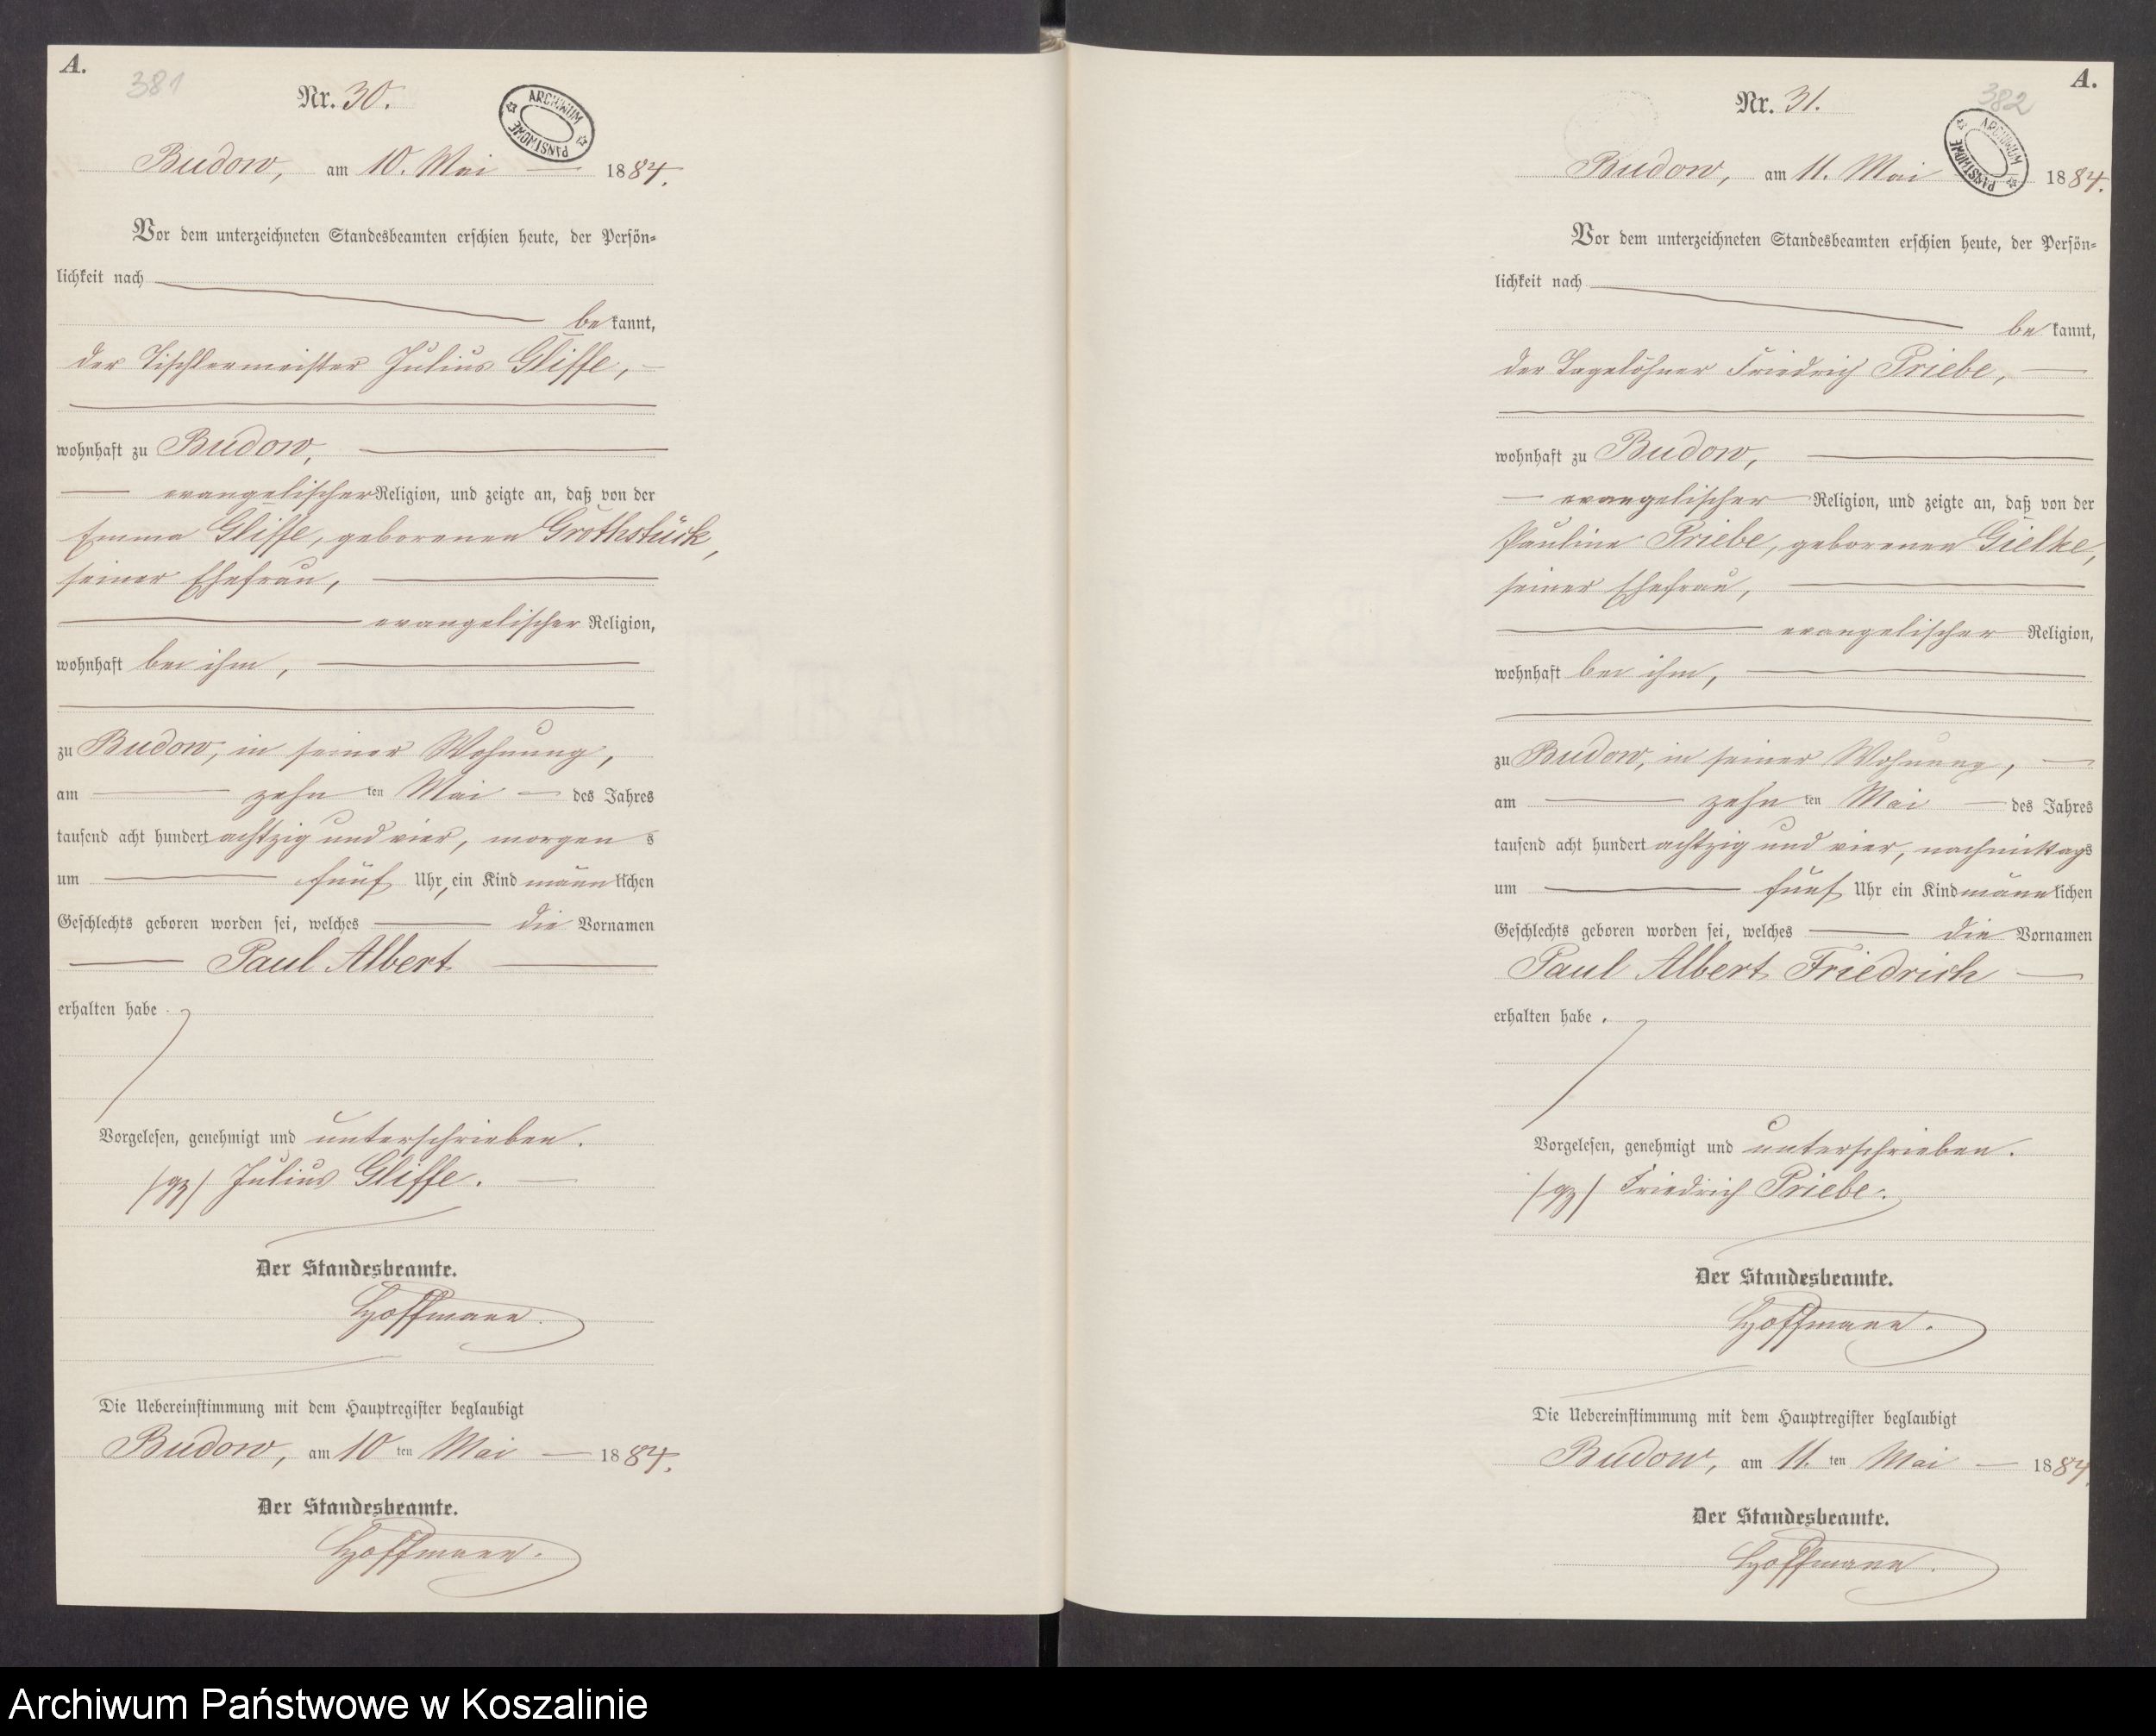 A.
381
Nr. 30.
ARCHIWUM PAŃSTWOWE
Budow, am 10. Mai 1884.
Vor dem unterzeichneten Standesbeamten erschien heute, der Persön=
lichkeit nach
bekannt,
der Tischlermeister Julius Gliffe,
wohnhaft zu Budow,
evangelischer Religion, und zeigte an, daß von der
Emma Gliffe, geborenen Grothstück,
seiner Ehefrau,
evangelischer Religion,
wohnhaft bei ihm,
zu Budow, in seiner Wohnung,
am zehn ten Mai des Jahres
tausend acht hundert achtzig und vier, morgens
um fünf Uhr, ein Kind männlichen
Geschlechts geboren worden sei, welches die Vornamen
Paul Albert
erhalten habe
Vorgelesen, genehmigt und unterschrieben.
/gz/ Julius Gliffe.
Der Standesbeamte.
Hoffmann.
Die Uebereinstimmung mit dem Hauptregister beglaubigt
Budow, am 10 ten Mai 1884.
Der Standesbeamte.
Hoffmann.
A.
382
Nr. 31.
ARCHIWUM PAŃSTWOWE
Budow, am 11. Mai 1884.
Vor dem unterzeichneten Standesbeamten erschien heute, der Persön=
lichkeit nach
bekannt,
der Tagelöhner Friedrich Priebe,
wohnhaft zu Budow,
evangelischer Religion, und zeigte an, daß von der
Pauline Priebe, geborenen Gielke,
seiner Ehefrau,
evangelischer Religion,
wohnhaft bei ihm,
zu Budow, in seiner Wohnung,
am zehn ten Mai des Jahres
tausend acht hundert achtzig und vier, nachmittags
um fünf Uhr ein Kind männlichen
Geschlechts geboren worden sei, welches die Vornamen
Paul Albert Friedrich
erhalten habe.
Vorgelesen, genehmigt und unterschrieben.
/gz/ Friedrich Priebe.
Der Standesbeamte.
Hoffmann.
Die Uebereinstimmung mit dem Hauptregister beglaubigt
Budow, am 11. ten Mai 1884.
Der Standesbeamte.
Hoffmann.
Archiwum Państwowe w Koszalinie